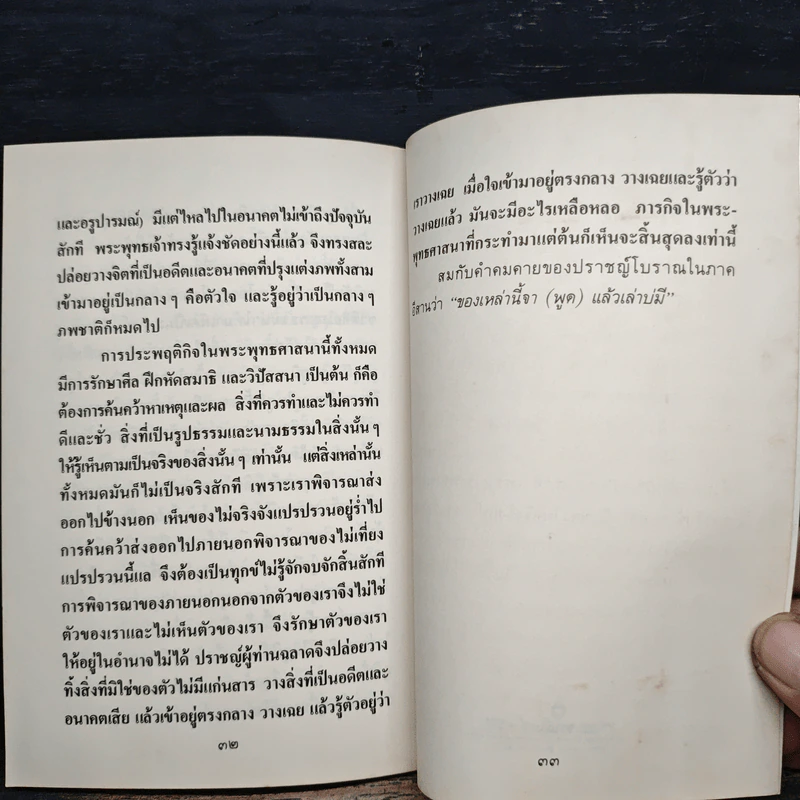 และอรูปารมณ์) มีแต่ไหลไปในอนาคตไม่เข้าถึงปัจจุบัน
สักที พระพุทธเจ้าทรงรู้แจ้งชัดอย่างนี้แล้ว จึงทรงสละ
ปล่อยวางจิตที่เป็นอดีตและอนาคตที่ปรุงแต่งภพทั้งสาม
เข้ามาอยู่เป็นกลาง ๆ คือตัวใจ และรู้อยู่ว่าเป็นกลาง ๆ
ภพชาติก็หมดไป
การประพฤติกิจในพระพุทธศาสนานี้ทั้งหมด
มีการรักษาศีล ฝึกหัดสมาธิ และวิปัสสนา เป็นต้น ก็คือ
ต้องการค้นคว้าหาเหตุและผล สิ่งที่ควรทำและไม่ควรทำ
ดีและชั่ว สิ่งที่เป็นรูปธรรมและนามธรรมในสิ่งนั้น ๆ
ให้รู้เห็นตามเป็นจริงของสิ่งนั้น ๆ เท่านั้น แต่สิ่งเหล่านั้น
ทั้งหมดมันก็ไม่เป็นจริงสักที เพราะเราพิจารณาส่ง
ออกไปข้างนอก เห็นของไม่จริงจังแปรปรวนอยู่ร่ำไป
การค้นคว้าส่งออกไปภายนอกพิจารณาของไม่เที่ยง
แปรปรวนนี้แล จึงต้องเป็นทุกข์ไม่รู้จักจบจักสิ้นสักที
การพิจารณาของภายนอกนอกจากตัวของเราจึงไม่ใช่
ตัวของเราและไม่เห็นตัวของเรา จึงรักษาตัวของเรา
ให้อยู่ในอำนาจไม่ได้ ปราชญ์ผู้ท่านฉลาดจึงปล่อยวาง
ทิ้งสิ่งที่มิใช่ของตัวไม่มีแก่นสาร วางสิ่งที่เป็นอดีตและ
อนาคตเสีย แล้วเข้าอยู่ตรงกลาง วางเฉย แล้วรู้ตัวอยู่ว่า
๓๒
เราวางเฉย เมื่อใจเข้ามาอยู่ตรงกลาง วางเฉยและรู้ตัวว่า
วางเฉยแล้ว มันจะมีอะไรเหลือหลอ ภารกิจในพระ-
พุทธศาสนาที่กระทำมาแต่ต้นก็เห็นจะสิ้นสุดลงเท่านี้
สมกับคำคมคายของปราชญ์โบราณในภาค
อีสานว่า “ของเหล่านี้จา (พูด) แล้วเล่าบ่มี”
๓๓